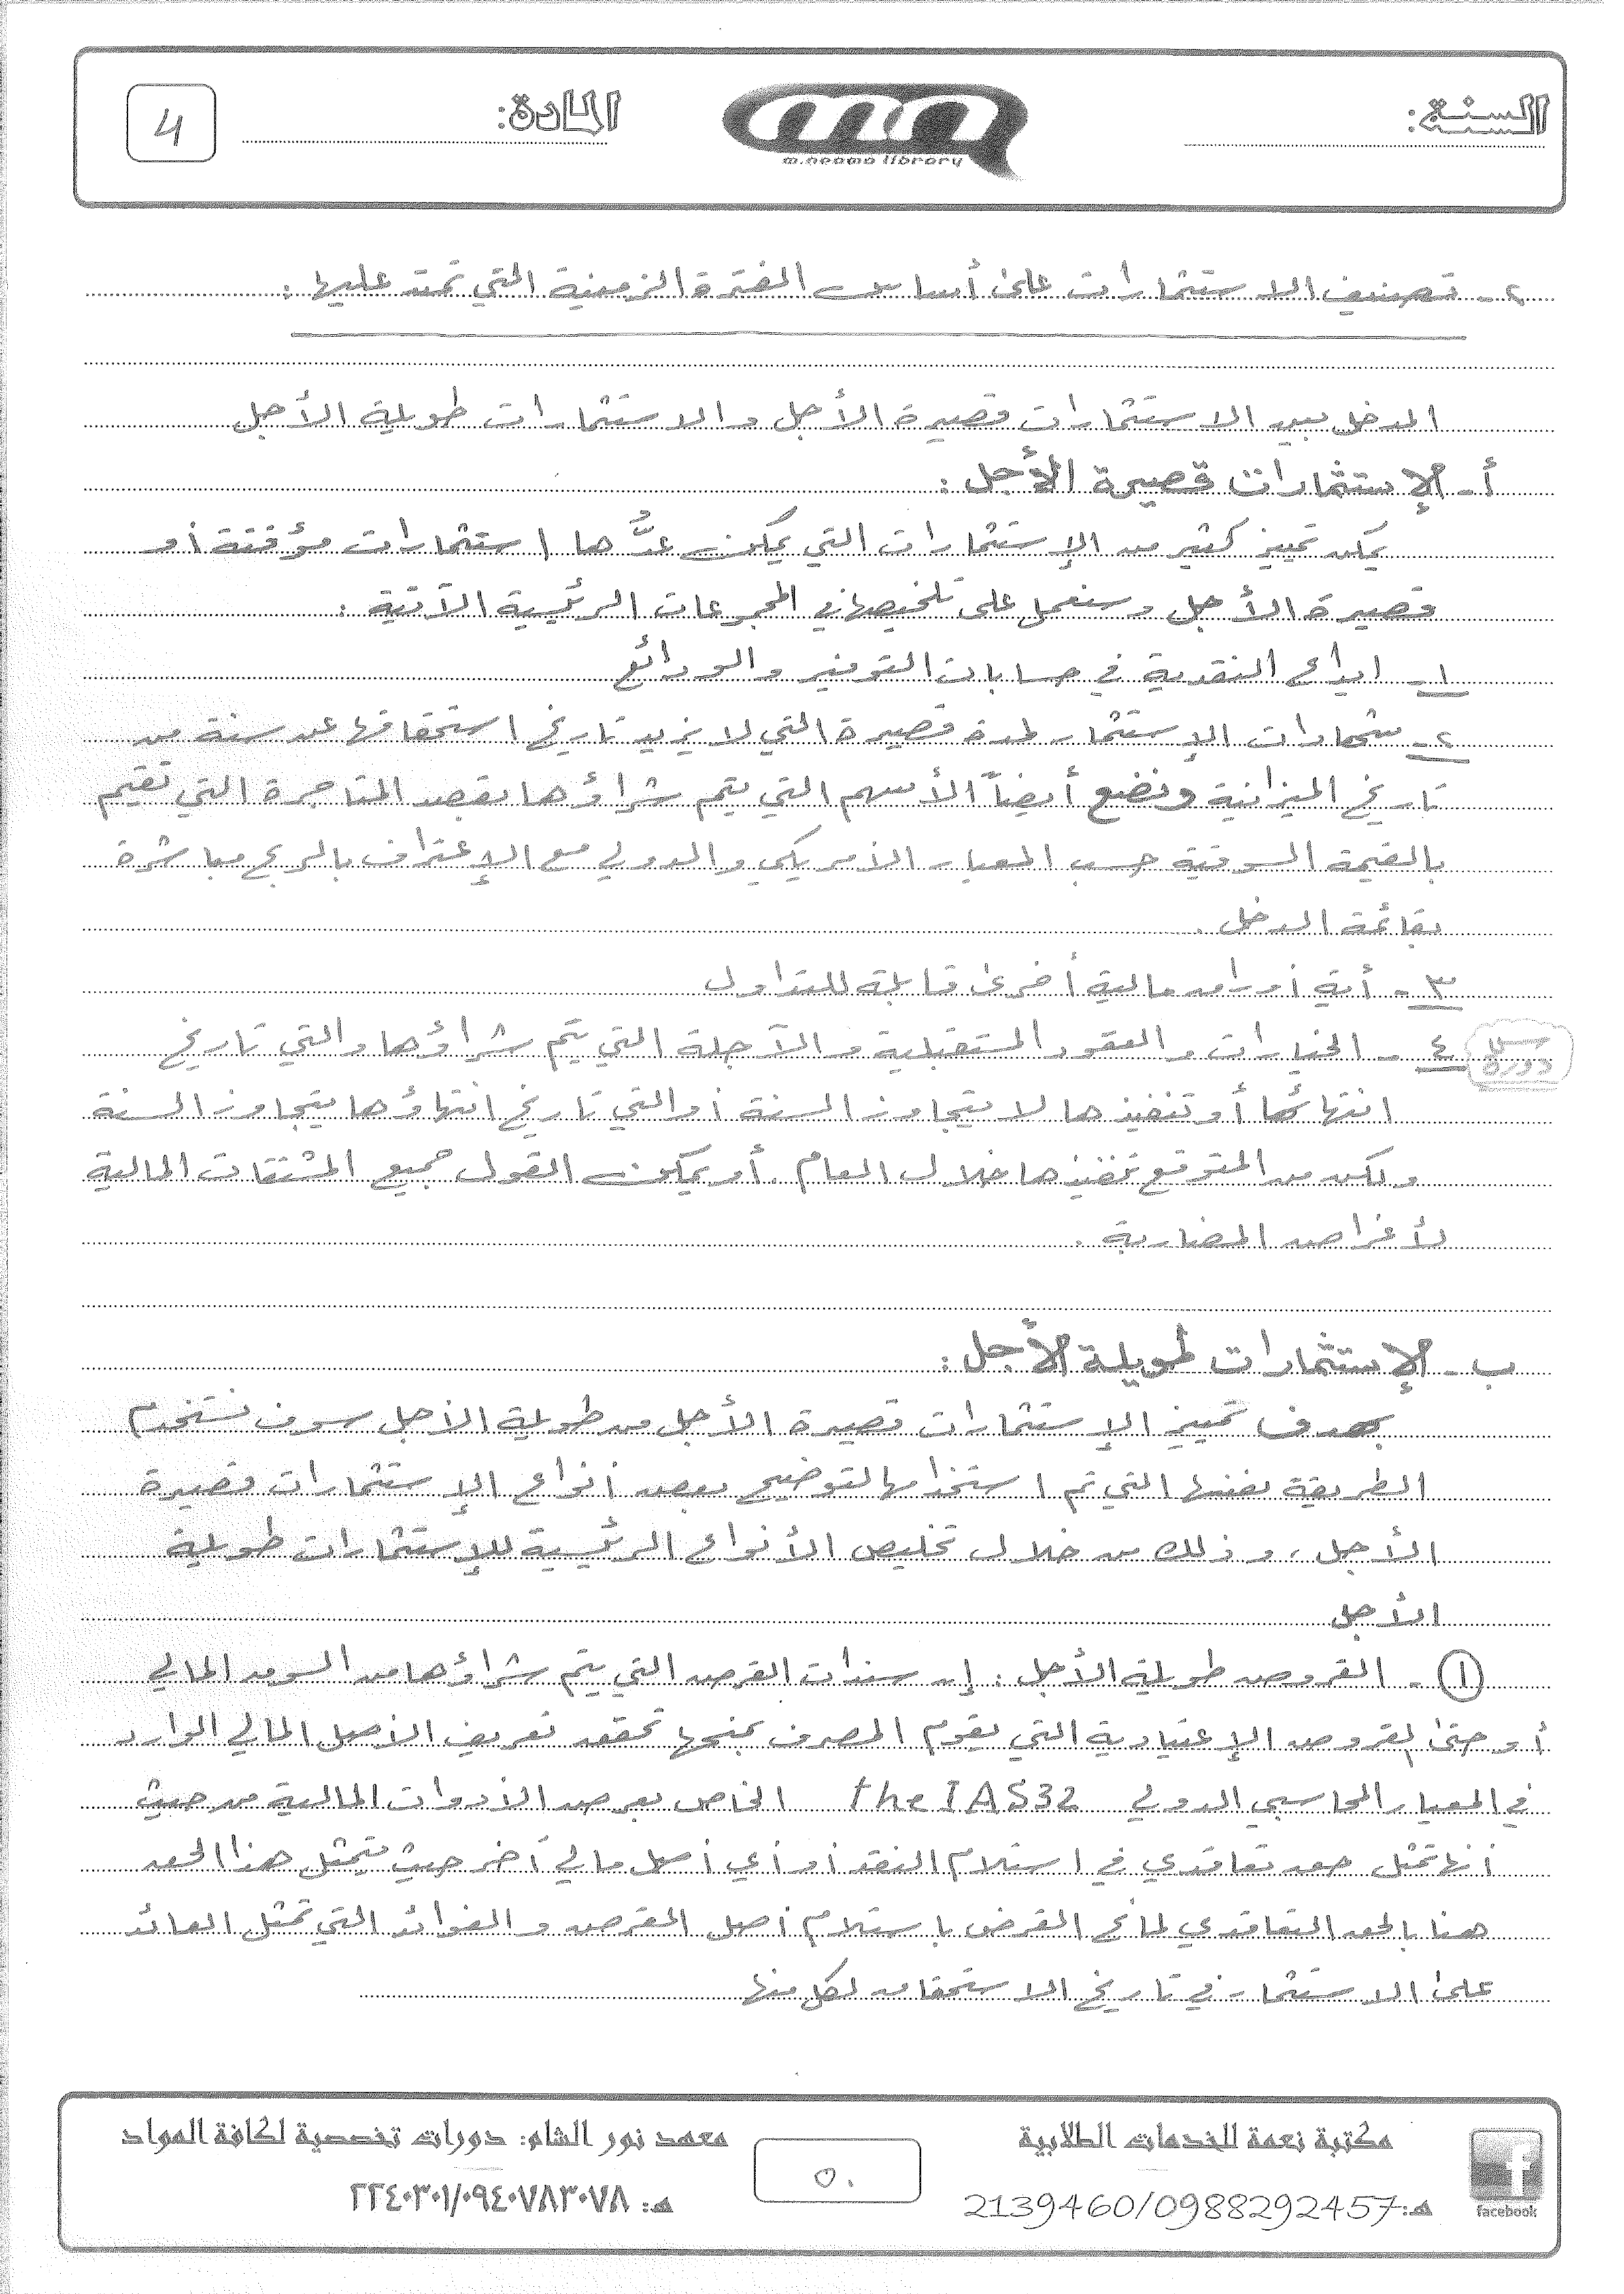 السنة:
m.neama library
المادة:
4
٢- تصنيف الاستثمارات على أساس الفترة الزمنية التي تمتد عليها :
المدخل بين الاستثمارات قصيرة الأجل والاستثمارات طويلة الأجل
أ- الإستثمارات قصيرة الأجل :
يمكن تمييز كثير من الإستثمارات التي يمكن عدُّها استثمارات مؤقتة أو
قصيرة الأجل وسنعمل على تلخيصها في المجموعات الرئيسية الآتية :
١- ايداع النقدية في حسابات التوفير والودائع
٢- شهادات الإستثمار لمدة قصيرة التي لا يزيد تاريخ استحقاقها عن سنة من
تاريخ الميزانية ونضع أيضاً الأسهم التي يتم شراؤها بقصد المتاجرة التي تقيم
بالقيمة السوقية حسب المعيار الأمريكي والدولي مع الإعتراف بالربح مباشرة
بقائمة الدخل .
٣- أية أوراق مالية أخرى قابلة للتداول
٤- الخيارات والعقود المستقبلية والآجلة التي يتم شراؤها والتي تاريخ
دورة
انتهائها أو تنفيذها لا يتجاوز السنة أو التي تاريخ انتهاؤها يتجاوز السنة
ولكن من المتوقع تنفيذها خلال العام . أو يمكن القول جميع المشتقات المالية
لأغراض المضاربة .
ب- الإستثمارات طويلة الأجل :
بهدف تمييز الإستثمارات قصيرة الأجل من طويلة الأجل سوف نستخدم
الطريقة نفسها التي تم استخدامها لتوضيح بعض أنواع الإستثمارات قصيرة
الأجل ، وذلك من خلال تلخيص الأنواع الرئيسية للإستثمارات طويلة
الأجل
① - القروض طويلة الأجل : إن سندات القرض التي يتم شراؤها من السوق المالي
أو حتى القروض الإعتيادية التي يقوم المصرف بمنحها تحقق تعريف الأصل المالي الوارد
في المعيار المحاسبي الدولي the IAS32 الخاص بعرض الأدوات المالية من حيث
أنها تمثل حق تعاقدي في استلام النقد أو أي أصل مالي أخر حيث يتمثل هذا الحق
هنا بالحق التعاقدي لمانح القرض باستلام أصل القرض والفوائد التي تمثل العائد
على الاستثمار في تاريخ الاستحقاق لكل منها
مكتبة نعمة للخدمات الطلابية
هـ: 2139460/0988292457
facebook
٥٠
معهد نور الشام: دورات تخصصية لكافة المواد
هـ: ٢٢٤٠٣٠١/٠٩٤٠٧٨٣٠٧٨